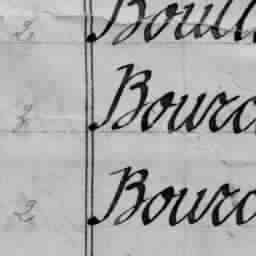 2 Bouil
2 Bourc
2 Bourc